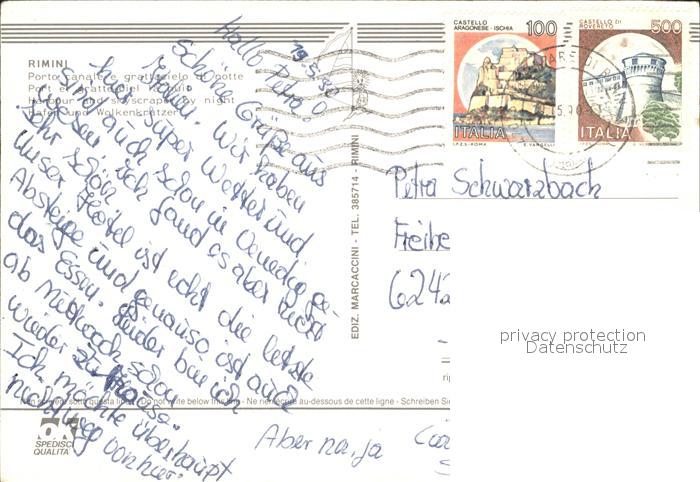 RIMINI
Porto canale e grattacielo di notte
Port et gratteciel
Harbour and skyscraper by night
Hafen und Wolkenkratzer
19.5.90
Hallo Petra!
Schöne Grüße aus
Rimini. Wir haben
hier super Wetter und
sind auch schon in Venedig ge-
wesen. Ich fand es aber nicht
sehr schön.
Unser Hotel ist echt die letzte
Absteige und genauso ist auch
das Essen. Leider bin ich
ab Mittwoch schon
wieder zu Hause.
Ich möchte überhaupt
nicht weg von hier.
Aber na, ja
EDIZ. MARCACCINI - TEL. 385714 - RIMINI
CASTELLO ARAGONESE - ISCHIA 100
ITALIA
I.P.Z.S.-ROMA E. VANGELLI
CASTELLO DI ROVERETO 500
ITALIA
I.P.Z.S.-ROMA E. VANGELLI
Petra Schwarzbach
Freihe
6242
privacy protection
Datenschutz
Non scrivere sotto questa linea - Do not write below this line - Ne rien écrire au-dessous de cette ligne - Schreiben Sie
SPEDISCI QUALITA'